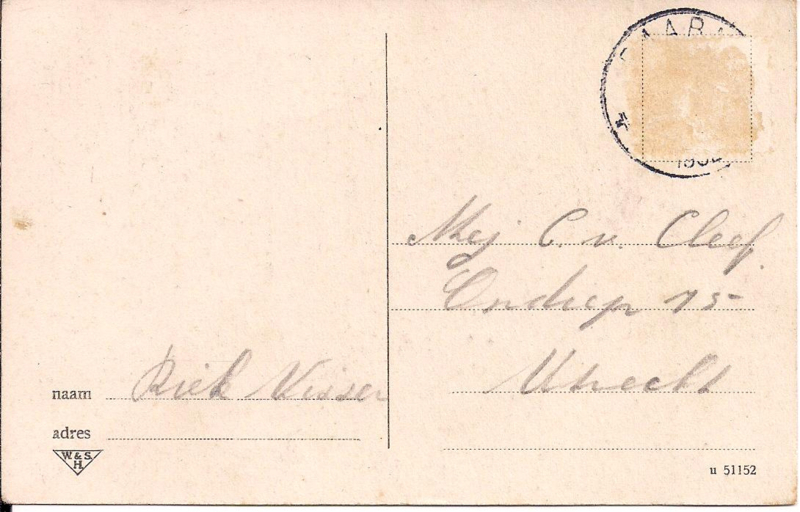 Mej C. v. Cleef.
Ondiep 75
Utrecht
naam Riek Visser
adres
W. & S.
H.
u 51152